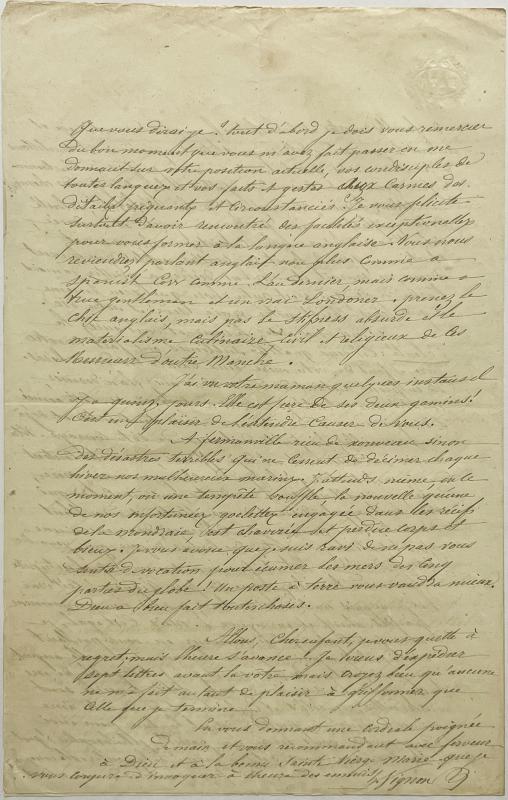 Que vous dirai-je ? tout d'abord je dois vous remercier
du bon moment que vous m'avez fait passer en me
donnant sur votre position actuelle, vos condisciples de
toutes langues et vos faits et gestes chez Carmes des
détails piquants et circonstanciés. Je vous félicite
surtout d'avoir rencontré des facilités exceptionnelles
pour vous former à la langue anglaise. Vous nous
reviendrez parlant anglais non plus comme a
spanish Cow comme l'an dernier, mais comme a
true gentleman et un vrai Londoner. prenez le
chic anglais, mais pas le stifness absurde et le
matérialisme culinaire civil et religieux de ces
Messieurs d'outre Manche.
J'ai vu votre maman quelques instans il
y a quinze jours. Elle est fière de ses deux gamins !
C'est un plaisir de l'entendre causer de vous.
A fermanville rien de nouveau sinon
des désastres terribles qui ne cessent de décimer chaque
hiver nos malheureux marins. J'attends même, en ce
moment, où une tempête souffle la nouvelle qu'une
de nos infortunées goelettes engagée dans les récifs
de la mondraie, s'est chavirée et perdue corps et
bieux. Je vous avoue que je suis ravi de ne pas vous
sentir de vocation pour écumer les mers des cinq
parties du globe ! Un poste à terre vous vaudra mieux.
Dieu a bien fait toutes choses.
Allons, Cher enfant, je vous quitte à
regret, mais l'heure s'avance. Je viens d'expédier
sept lettres avant la vôtre mais croyez bien qu'aucune
ne m'a fait autant de plaisir à griffonner que
celle que je termine
en vous donnant une cordiale poignée
de main et vous recommandant avec ferveur
à Dieu et à la bonne Sainte Vierge Marie que je
vous conjure d'invoquer à l'heure des ennuis.